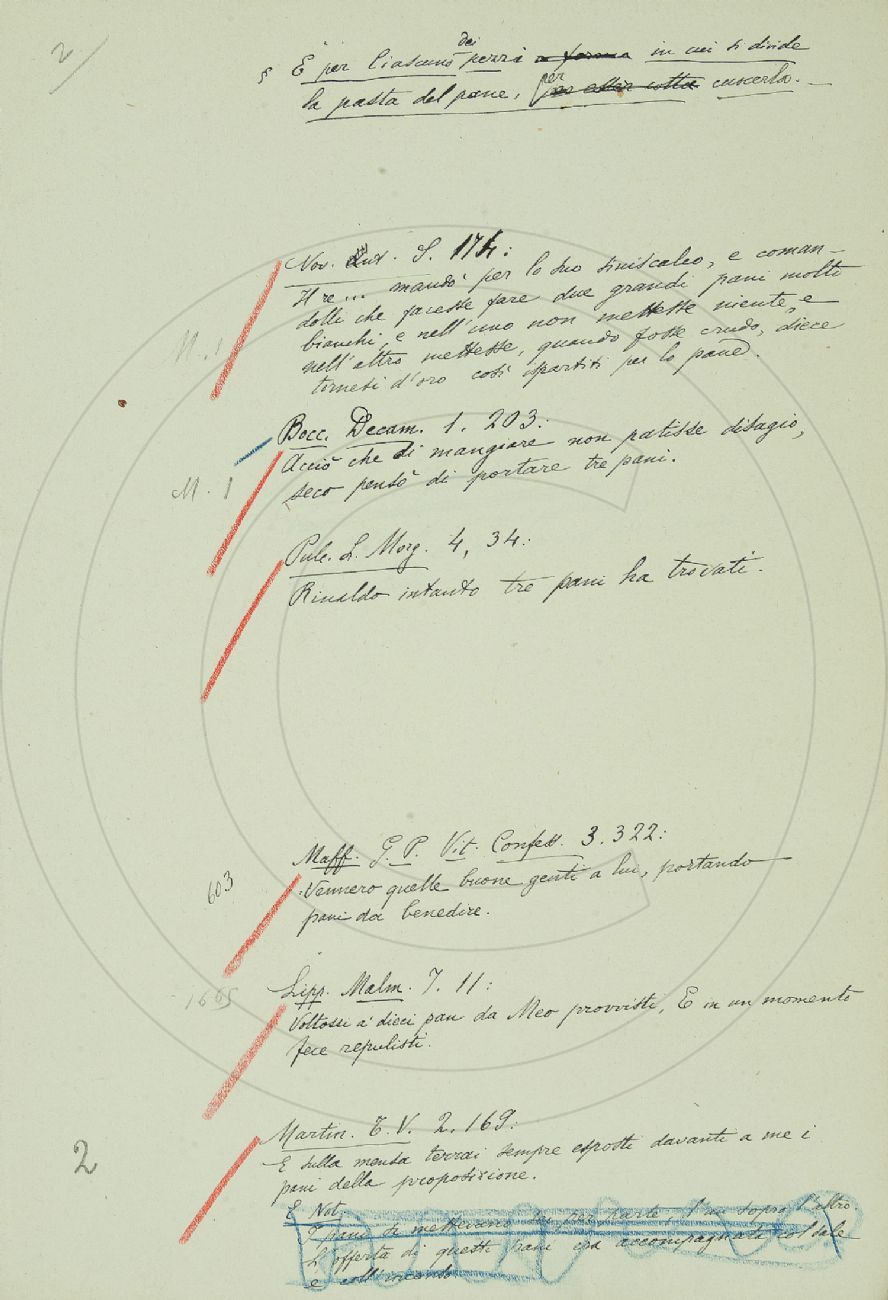 2
§ E per Ciascuno dei pezzi a forma in cui si divide
la pasta del pane, per esser cotta cuocerla. —
Nov. Ant. S. 174:
Il re... mandò per lo suo siniscalco, e coman-
dolli che facesse fare due grandi pani molto
bianchi, e nell'uno non mettesse niente, e
nell'altro mettesse, quando fosse crudo, diece
tornesi d'oro così spartiti per lo pane.
M. 1
Bocc. Decam. 1. 203:
Acciò che di mangiare non patisse disagio,
seco pensò di portare tre pani.
M. 1
Pulc. L. Morg. 4, 34:
Rinaldo intanto tre pani ha trovati.
Maff. G. P. Vit. Confess. 3. 322:
603
Vennero quelle buone genti a lui, portando
pani da benedire.
Lipp. Malm. 7. 11:
1665
Voltossi a' dieci pan da Meo provvisti, E in un momento
fece repulisti.
Martin. T. V. 2. 169:
2
E sulla mensa terrai sempre esposti davanti a me i
pani della proposizione.
E Not.
I pani si mettevano sei per parte, l'un sopra l'altro.
L'offerta di questi pani era accompagnata col sale
e coll'incenso